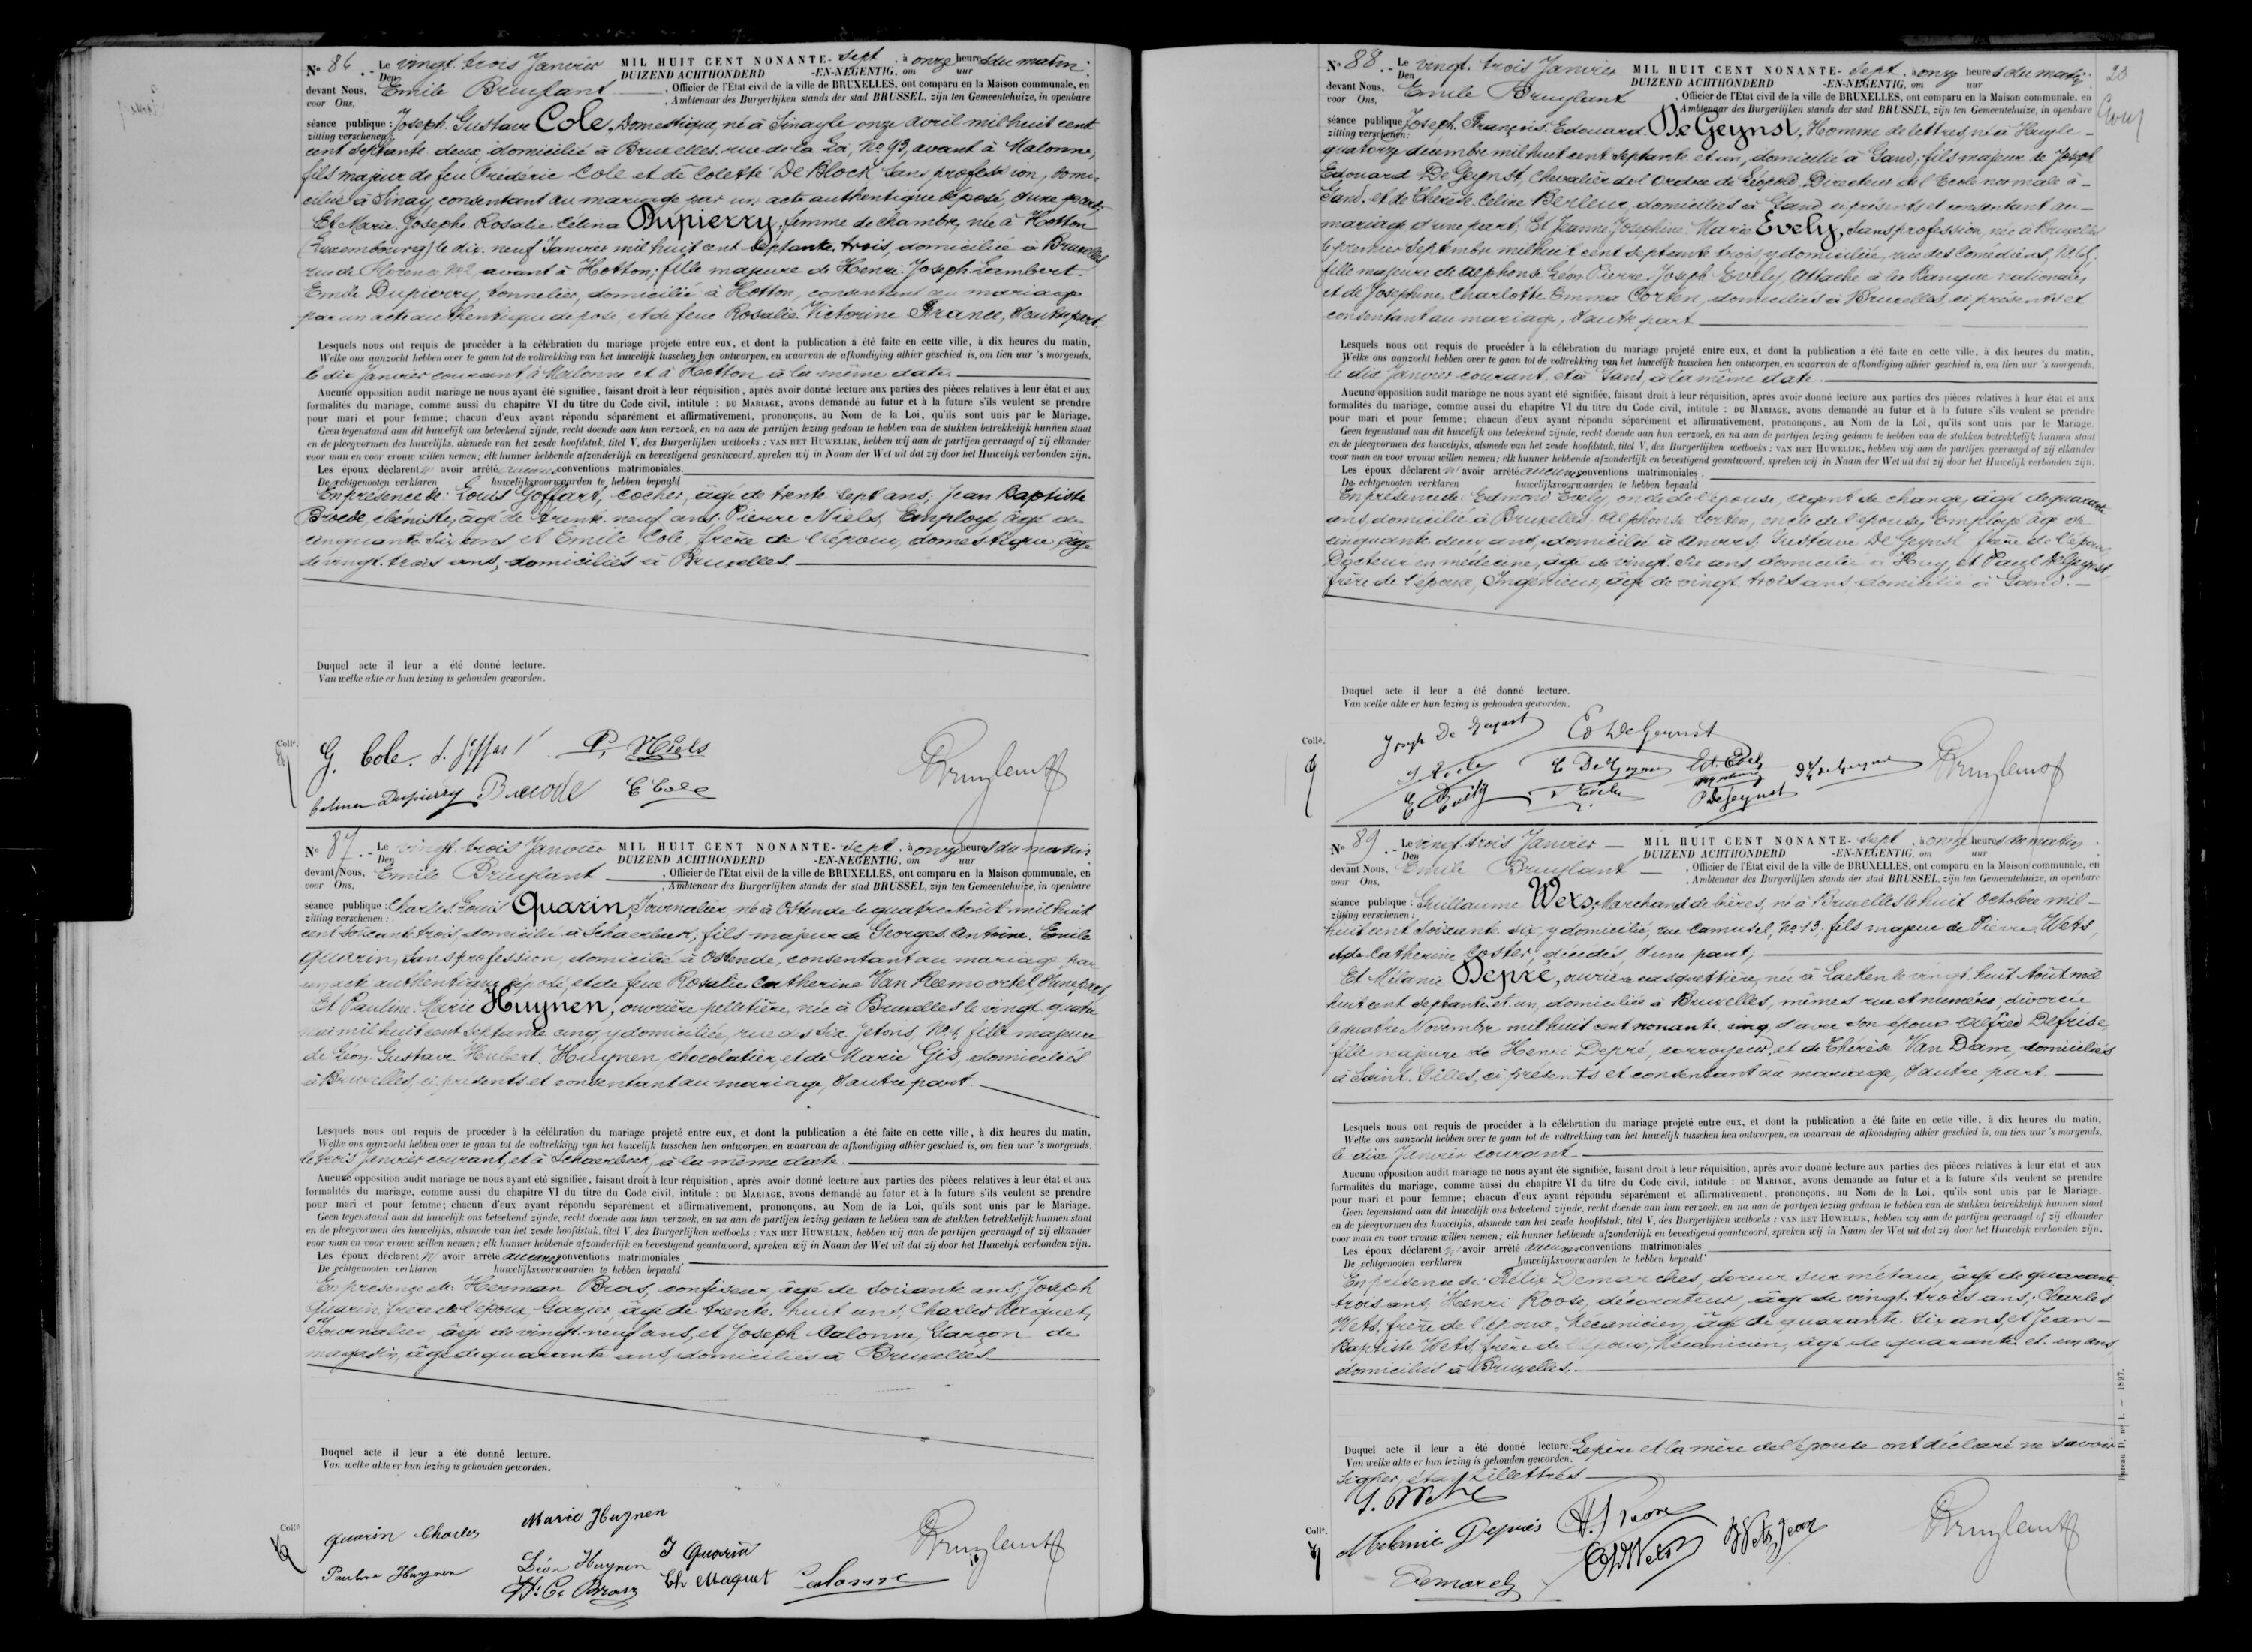 N° 86 .- Le vingt-trois Janvier MIL HUIT CENT NONANTE- sept , à onze heures du matin.
Den DUIZEND ACHTHONDERD -EN-NEGENTIG, om uur
devant Nous, Emile Bruylant , Officier de l'Etat civil de la ville de BRUXELLES, ont comparu en la Maison communale, en
voor Ons, , Ambtenaar des Burgerlijken stands der stad BRUSSEL, zijn ten Gemeentehuize, in openbare
séance publique : Joseph Gustave Cole, Domestique, né à Sinay le onze avril mil huit cent
zitting verschenen :
cent septante deux, domicilié à Bruxelles, rue de la Loi, N° 93, avant à Malonne,
fils majeur de feu Fréderic Cole et de Colette De Block sans profession, domi-
ciliée à Sinay, consentant au mariage par un acte authentique déposé, d'une part;
Et Marie Josephe Rosalie Célina Dupierry, femme de chambre, née à Hotton
(Luxembourg) le dix-neuf Janvier mil huit cent septante-trois, domiciliée à Bruxelles
rue de Florence, N° 2, avant à Hotton; fille majeure de Henri Joseph Lambert
Emile Dupierry, tonnelier, domicilié à Hotton, consentant au mariage
par un acte authentique déposé, et de feue Rosalie Victorine France, d'autre part.
Lesquels nous ont requis de procéder à la célébration du mariage projeté entre eux, et dont la publication a été faite en cette ville, à dix heures du matin,
Welke ons aanzocht hebben over te gaan tot de voltrekking van het huwelijk tusschen hen ontworpen, en waarvan de afkondiging alhier geschied is, om tien uur 's morgends,
le dix Janvier courant, à Malonne et à Hotton, à la même date.
Aucune opposition audit mariage ne nous ayant été signifiée, faisant droit à leur réquisition, après avoir donné lecture aux parties des pièces relatives à leur état et aux
formalités du mariage, comme aussi du chapitre VI du titre du Code civil, intitulé : DU MARIAGE, avons demandé au futur et à la future s'ils veulent se prendre
pour mari et pour femme; chacun d'eux ayant répondu séparément et affirmativement, prononçons, au Nom de la Loi, qu'ils sont unis par le Mariage.
Geen tegenstand aan dit huwelijk ons beteekend zijnde, recht doende aan hun verzoek, en na aan de partijen lezing gedaan te hebben van de stukken betrekkelijk hunnen staat
en de pleegvormen des huwelijks, alsmede van het zesde hoofdstuk, titel V, des Burgerlijken wetboeks : VAN HET HUWELIJK, hebben wij aan de partijen gevraagd of zij elkander
voor man en voor vrouw willen nemen; elk hunner hebbende afzonderlijk en bevestigend geantwoord, spreken wij in Naam der Wet uit dat zij door het Huwelijk verbonden zijn.
Les époux déclarent n' avoir arrêté aucunes conventions matrimoniales.
De echtgenooten verklaren huwelijksvoorwaarden te hebben bepaald
En présence de: Louis Goffart, cocher, âgé de trente-sept ans; Jean Baptiste
Broede, ébéniste, âgé de trente-neuf ans; Pierre Niels, Employé, âgé de
cinquante-six ans, et Emile Cole, frère de l'époux, domestique, âgé
de vingt-trois ans, domiciliés à Bruxelles.
Duquel acte il leur a été donné lecture.
Van welke akte er hun lezing is gehouden geworden.
Coll°.
G. Cole. L. Goffart P. Niels
Celina Dupierry Broede E Cole Bruylant
N° 87 .- Le vingt-trois Janvier MIL HUIT CENT NONANTE- sept , à onze heures du matin
Den DUIZEND ACHTHONDERD -EN-NEGENTIG, om uur
devant Nous, Emile Bruylant , Officier de l'Etat civil de la ville de BRUXELLES, ont comparu en la Maison communale, en
voor Ons, , Ambtenaar des Burgerlijken stands der stad BRUSSEL, zijn ten Gemeentehuize, in openbare
séance publique : Charles Louis Quarin, Journalier, né à Ostende le quatre Août mil huit
zitting verschenen :
cent soixante-trois, domicilié à Schaerbeek; fils majeur de Georges Antoine Emile
Quarin, sans profession, domicilié à Ostende, consentant au mariage par
un acte authentique déposé, et de feue Rosalie Catherine Van Heemoortel d'une part;
Et Pauline Marie Huynen, ouvrière pelletière, née à Bruxelles le vingt-quatre
mai mil huit cent septante-cinq, y domiciliée, rue des Six Jetons, N° 4, fille majeure
de Léon Gustave Hubert Huynen, chocolatier, et de Marie Gis, domiciliés
à Bruxelles, ci présents et consentant au mariage, d'autre part.
Lesquels nous ont requis de procéder à la célébration du mariage projeté entre eux, et dont la publication a été faite en cette ville, à dix heures du matin,
Welke ons aanzocht hebben over te gaan tot de voltrekking van het huwelijk tusschen hen ontworpen, en waarvan de afkondiging alhier geschied is, om tien uur 's morgends,
le trois Janvier courant, et à Schaerbeek, à la même date.
Aucune opposition audit mariage ne nous ayant été signifiée, faisant droit à leur réquisition, après avoir donné lecture aux parties des pièces relatives à leur état et aux
formalités du mariage, comme aussi du chapitre VI du titre du Code civil, intitulé : DU MARIAGE, avons demandé au futur et à la future s'ils veulent se prendre
pour mari et pour femme; chacun d'eux ayant répondu séparément et affirmativement, prononçons, au Nom de la Loi, qu'ils sont unis par le Mariage.
Geen tegenstand aan dit huwelijk ons beteekend zijnde, recht doende aan hun verzoek, en na aan de partijen lezing gedaan te hebben van de stukken betrekkelijk hunnen staat
en de pleegvormen des huwelijks, alsmede van het zesde hoofdstuk, titel V, des Burgerlijken wetboeks : VAN HET HUWELIJK, hebben wij aan de partijen gevraagd of zij elkander
voor man en voor vrouw willen nemen; elk hunner hebbende afzonderlijk en bevestigend geantwoord, spreken wij in Naam der Wet uit dat zij door het Huwelijk verbonden zijn.
Les époux déclarent n' avoir arrêté aucunes conventions matrimoniales
De echtgenooten verklaren huwelijksvoorwaarden te hebben bepaald
En présence de Herman Bras, confiseur, âgé de soixante ans; Joseph
Quarin, frère de l'époux, Gazier, âgé de trente-huit ans; Charles Maquet,
Journalier, âgé de vingt-neuf ans, et Joseph Calonne, Garçon de
magasin, âgé de quarante ans, domiciliés à Bruxelles
Duquel acte il leur a été donné lecture.
Van welke akte er hun lezing is gehouden geworden.
Coll°
Marie Huynen
Quarin Charles J Quarin Bruylant
Pauline Huynen Léon Huynen Ch Maquet Calonne
N° 88 .- Le vingt-trois Janvier MIL HUIT CENT NONANTE- sept , à onze heures du matin. 23
Den DUIZEND ACHTHONDERD -EN-NEGENTIG, om uur
devant Nous, Emile Bruylant , Officier de l'Etat civil de la ville de BRUXELLES, ont comparu en la Maison communale, en
voor Ons, , Ambtenaar des Burgerlijken stands der stad BRUSSEL, zijn ten Gemeentehuize, in openbare
séance publique : Joseph François Edouard De Geynst, Homme de lettres, né à Heyle
zitting verschenen :
quatorze décembre mil huit cent septante et un, domicilié à Gand; fils majeur de Joseph
Edouard De Geynst, Chevalier de l'Ordre de Léopold, Directeur de l'Ecole normale à
Gand, et de Thérèse Celine Berleur, domiciliés à Gand ci présents et consentant au
mariage d'une part; Et Jeanne Joséphine Marie Evely, sans profession, née à Bruxelles
le premier Septembre mil huit cent septante trois, y domiciliée, rue des Comédiens, N°
fille majeure de Alphonse Léon Pierre Joseph Evely, Attaché à la Banque nationale,
et de Josephine Charlotte Emma Corten, domiciliés à Bruxelles, ci présents et
consentant au mariage, d'autre part
Lesquels nous ont requis de procéder à la célébration du mariage projeté entre eux, et dont la publication a été faite en cette ville, à dix heures du matin,
Welke ons aanzocht hebben over te gaan tot de voltrekking van het huwelijk tusschen hen ontworpen, en waarvan de afkondiging alhier geschied is, om tien uur 's morgends,
le dix Janvier courant, et à Gand, à la même date.
Aucune opposition audit mariage ne nous ayant été signifiée, faisant droit à leur réquisition, après avoir donné lecture aux parties des pièces relatives à leur état et aux
formalités du mariage, comme aussi du chapitre VI du titre du Code civil, intitulé : DU MARIAGE, avons demandé au futur et à la future s'ils veulent se prendre
pour mari et pour femme; chacun d'eux ayant répondu séparément et affirmativement, prononçons, au Nom de la Loi, qu'ils sont unis par le Mariage.
Geen tegenstand aan dit huwelijk ons beteekend zijnde, recht doende aan hun verzoek, en na aan de partijen lezing gedaan te hebben van de stukken betrekkelijk hunnen staat
en de pleegvormen des huwelijks, alsmede van het zesde hoofdstuk, titel V, des Burgerlijken wetboeks : VAN HET HUWELIJK, hebben wij aan de partijen gevraagd of zij elkander
voor man en voor vrouw willen nemen; elk hunner hebbende afzonderlijk en bevestigend geantwoord, spreken wij in Naam der Wet uit dat zij door het Huwelijk verbonden zijn.
Les époux déclarent n' avoir arrêté aucunes conventions matrimoniales
De echtgenooten verklaren huwelijksvoorwaarden te hebben bepaald
En présence de: Edmond Evely, oncle de l'épouse, agent de change, âgé de quarante
ans, domicilié à Bruxelles; Alphonse Corten, oncle de l'épouse, Employé âgé de
cinquante-deux ans, domicilié à Anvers; Gustave De Geynst frère de l'époux
Docteur en médecine, âgé de vingt-six ans, domicilié à Huy, et Paul De Geynst,
frère de l'époux, Ingénieur, âgé de vingt-trois ans, domicilié à Gand.
Duquel acte il leur a été donné lecture.
Van welke akte er hun lezing is gehouden geworden.
Coll°.
Joseph De Geynst Ed De Geynst
De Geynst Bruylant
E Evely P De Geynst
N° 89 .- Le vingt-trois Janvier MIL HUIT CENT NONANTE- sept , à onze heures du matin
Den DUIZEND ACHTHONDERD -EN-NEGENTIG, om uur
devant Nous, Emile Bruylant , Officier de l'Etat civil de la ville de BRUXELLES, ont comparu en la Maison communale, en
voor Ons, , Ambtenaar des Burgerlijken stands der stad BRUSSEL, zijn ten Gemeentehuize, in openbare
séance publique : Guillaume Wets, Marchand de bières, né à Bruxelles le huit Octobre mil
zitting verschenen :
huit cent soixante-six, y domicilié, rue Camusel, N° 13, fils majeur de Pierre Wets,
et de Catherine Coster, décédés, d'une part;
Et Mélanie Depré, ouvrière casquettière, née à Laeken le vingt-huit Août mil
huit cent septante et un, domiciliée à Bruxelles, mêmes rue et numéro; divorcée
le quatre Novembre mil huit cent nonante-cinq, d'avec son époux Alfred Defrise,
fille majeure de Henri Depré, corroyeur, et de Thérèse Van Dam, domiciliés
à Saint-Gilles, ci présents et consentant au mariage, d'autre part
Lesquels nous ont requis de procéder à la célébration du mariage projeté entre eux, et dont la publication a été faite en cette ville, à dix heures du matin,
Welke ons aanzocht hebben over te gaan tot de voltrekking van het huwelijk tusschen hen ontworpen, en waarvan de afkondiging alhier geschied is, om tien uur 's morgends,
le dix Janvier courant
Aucune opposition audit mariage ne nous ayant été signifiée, faisant droit à leur réquisition, après avoir donné lecture aux parties des pièces relatives à leur état et aux
formalités du mariage, comme aussi du chapitre VI du titre du Code civil, intitulé : DU MARIAGE, avons demandé au futur et à la future s'ils veulent se prendre
pour mari et pour femme; chacun d'eux ayant répondu séparément et affirmativement, prononçons, au Nom de la Loi, qu'ils sont unis par le Mariage.
Geen tegenstand aan dit huwelijk ons beteekend zijnde, recht doende aan hun verzoek, en na aan de partijen lezing gedaan te hebben van de stukken betrekkelijk hunnen staat
en de pleegvormen des huwelijks, alsmede van het zesde hoofdstuk, titel V, des Burgerlijken wetboeks : VAN HET HUWELIJK, hebben wij aan de partijen gevraagd of zij elkander
voor man en voor vrouw willen nemen; elk hunner hebbende afzonderlijk en bevestigend geantwoord, spreken wij in Naam der Wet uit dat zij door het Huwelijk verbonden zijn.
Les époux déclarent n' avoir arrêté aucunes conventions matrimoniales
De echtgenooten verklaren huwelijksvoorwaarden te hebben bepaald
En présence de: Félix Demarches, doreur sur métaux, âgé de quarante
trois ans; Henri Roose, décorateur, âgé de vingt-trois ans; Charles
Wets, frère de l'époux, Mécanicien, âgé de quarante-six ans, et Jean
Baptiste Wets, frère de l'époux, Mécanicien, âgé de quarante et un ans
domiciliés à Bruxelles.
Duquel acte il leur a été donné lecture. Le père et la mère de l'épouse ont déclaré ne savoir
Van welke akte er hun lezing is gehouden geworden.
signer, étant illettrés
Coll°.
G. Wets
Melanie Depré H. Roose Wets Jean Bruylant
Demarch Ch Wets
Bureau D, n° 1. — 1897.